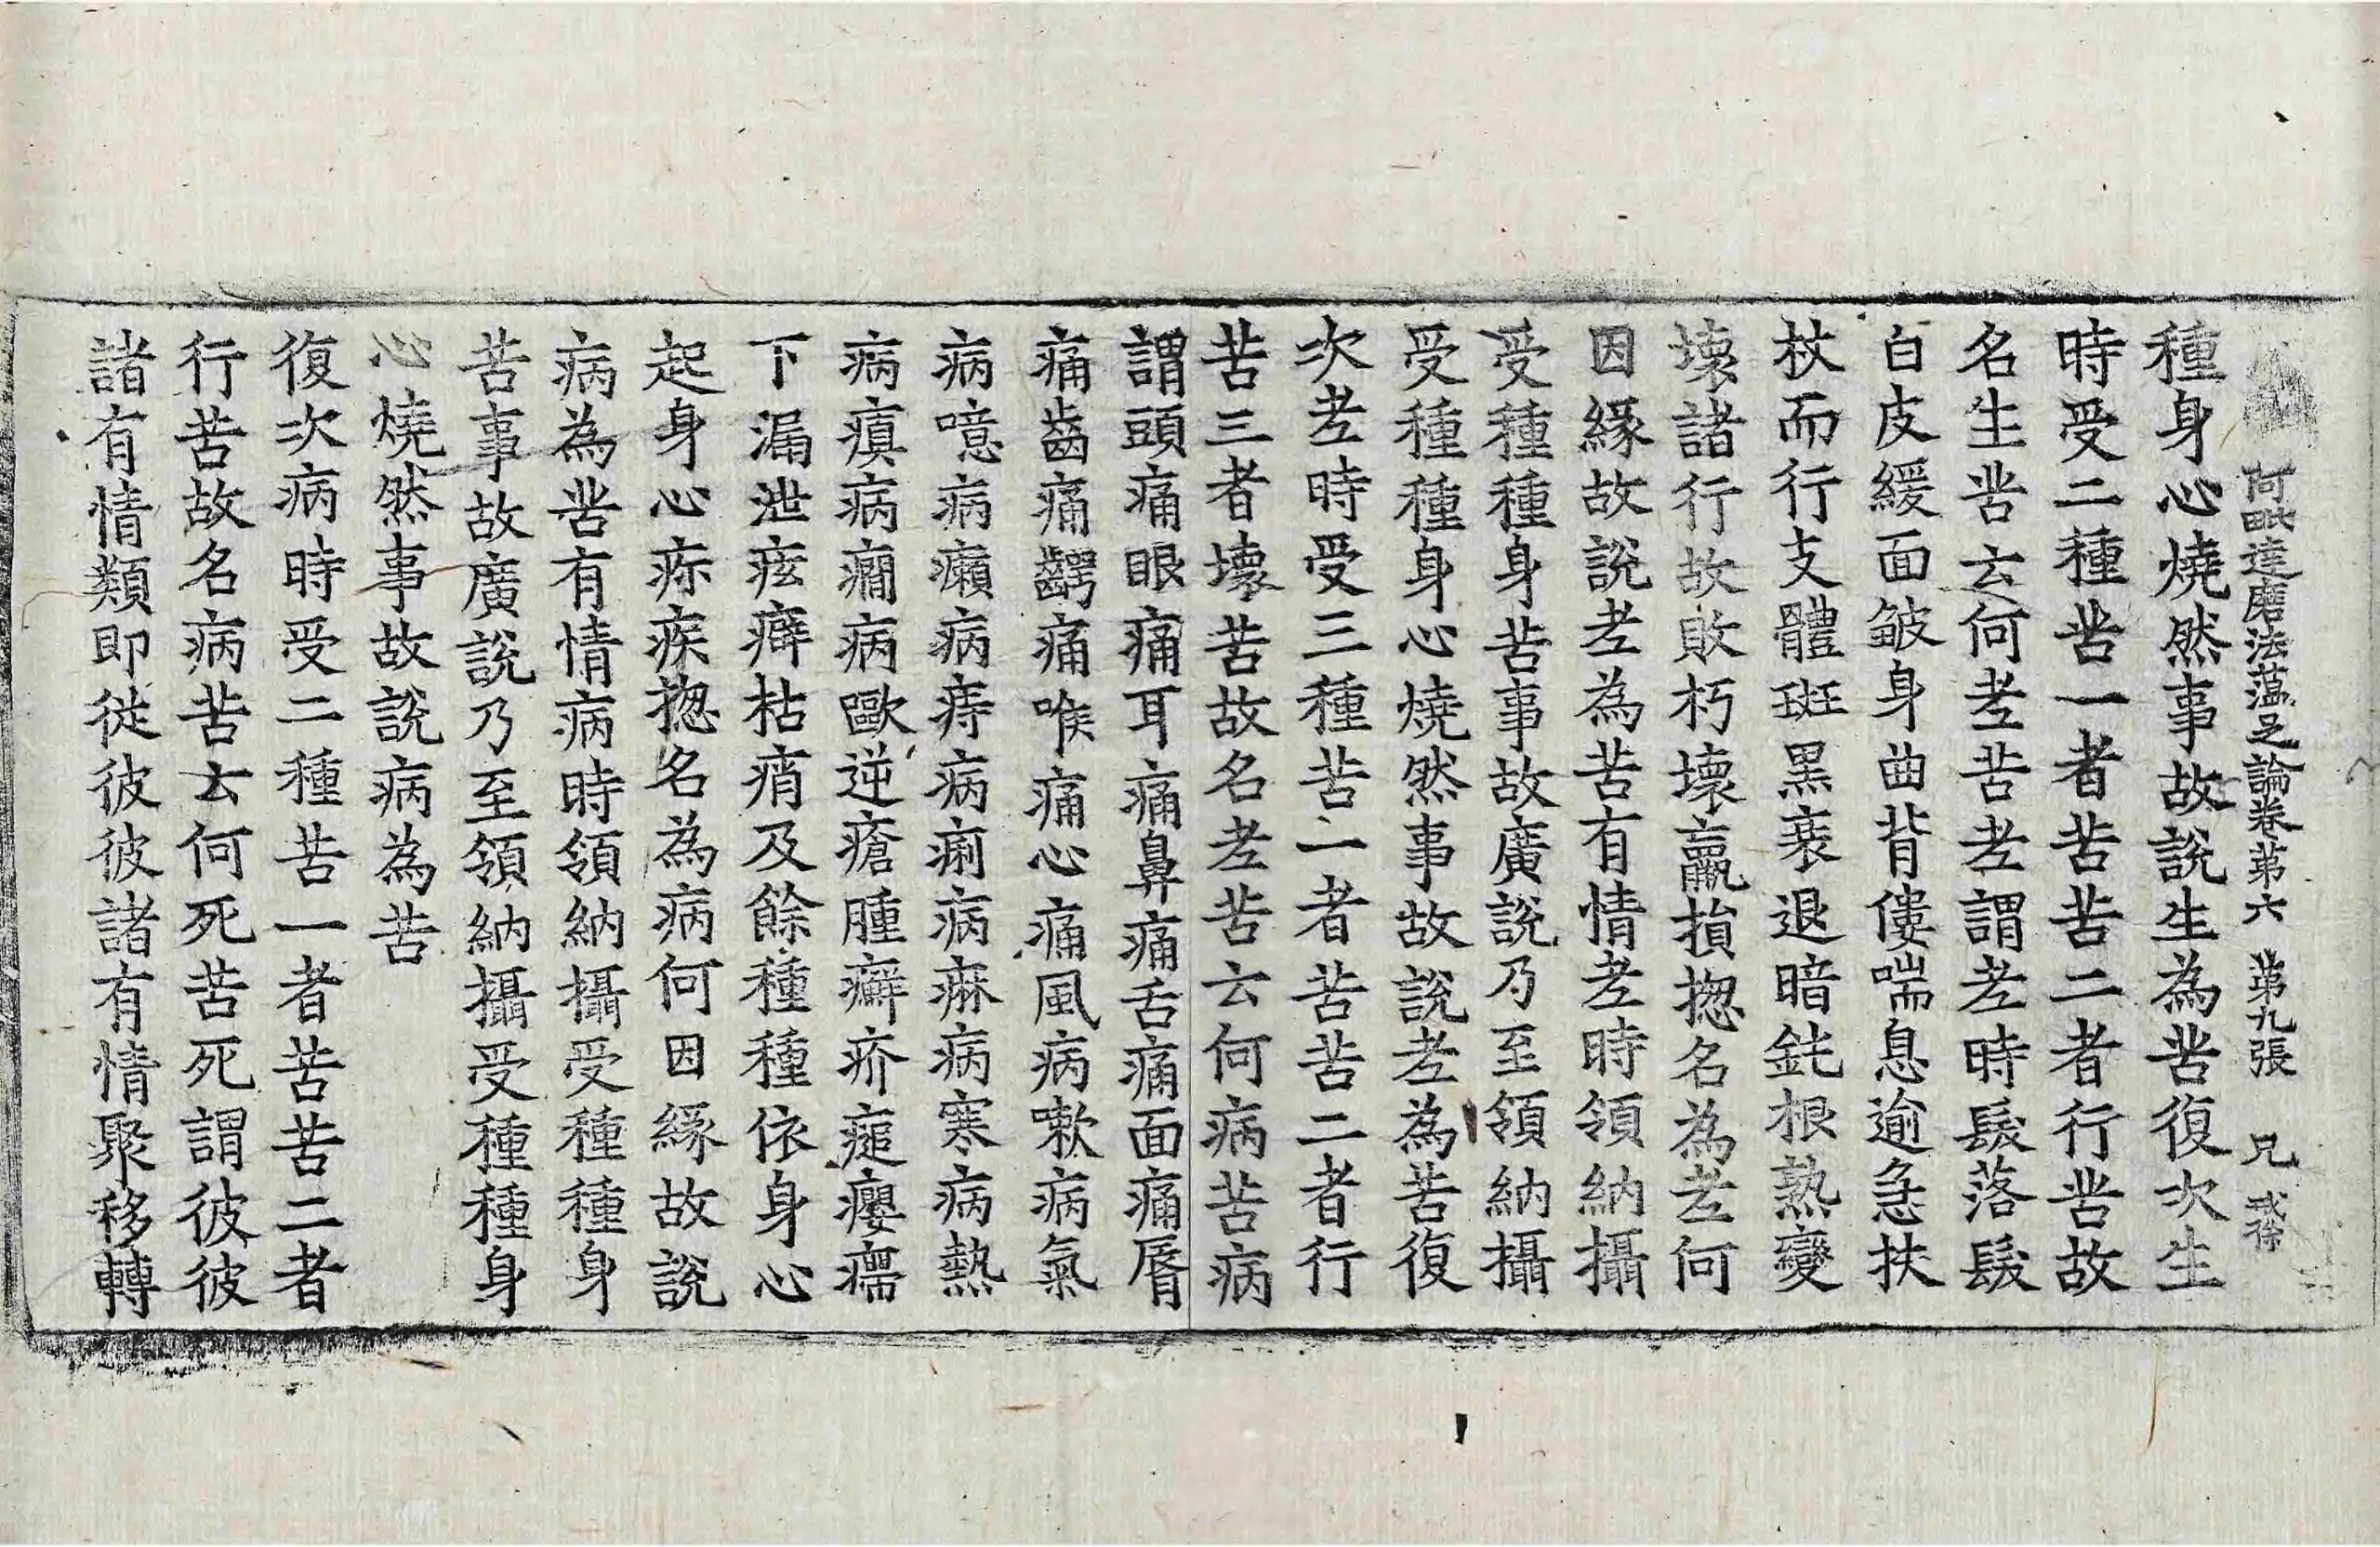 阿毗達磨法蘊足論卷第六　第九張　兄
種身心燒然事故說生為苦復次生
時受二種苦一者苦苦二者行苦故
名生苦云何老苦老謂老時髮落髮
白皮緩面皺身曲背僂喘息逾急扶
杖而行支體斑黑衰退暗鈍根熟變
壞諸行故敗朽壞羸損揔名為老何
因緣故說老為苦有情老時領納攝
受種種身苦事故廣說乃至領納攝
受種種身心燒然事故說老為苦復
次老時受三種苦一者苦苦二者行
苦三者壞苦故名老苦云何病苦病
謂頭痛眼痛耳痛鼻痛舌痛面痛脣
痛齒痛齶痛喉痛心痛風病嗽病氣
病噫病癩病痔病痢病痳病寒病熱
病瘨病癎病歐逆瘡腫癬疥瘧癭癗
下漏泄痃癖枯痟及餘種種依身心
起身心疹疾揔名為病何因緣故說
病為苦有情病時領納攝受種種身
苦事故廣說乃至領納攝受種種身
心燒然事故說病為苦
復次病時受二種苦一者苦苦二者
行苦故名病苦云何死苦死謂彼彼
諸有情類即從彼彼諸有情聚移轉